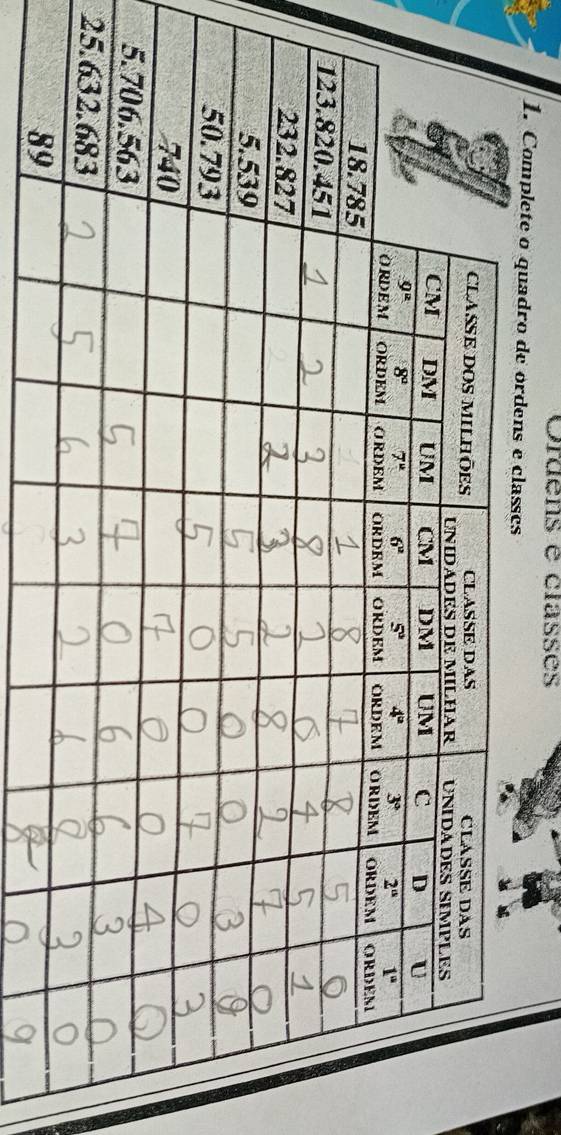 Ordens e classes
1. Complete o quadro de ordens e classes
CLASSE DOS MILHÕES CLASSE DAS UNIDADES DE MILHAR CLASSE DAS UNIDADES SIMPLES
CM DM UM CM DM UM C D U
9ª ORDEM 8ª ORDEM 7ª ORDEM 6ª ORDEM 5ª ORDEM 4ª ORDEM 3ª ORDEM 2ª ORDEM 1ª ORDEM
18.785 1 8 7 8 5 0
123.820.451 1 2 3 8 2 0 4 5 1
232.827 2 3 2 8 2 7 0
5.539 5 5 0 0 3 9
50.793 5 0 0 7 0 3
740 7 0 0 4 0
5.706.563 5 7 0 6 6 3 0
25.632.683 2 5 6 3 2 6 8 3 0
89 8 0 9